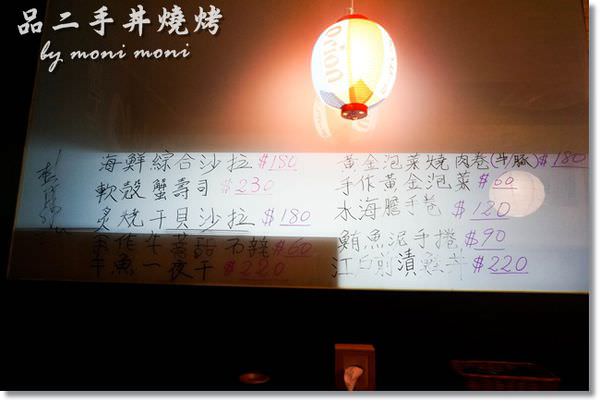 品二手丼燒烤
by moni moni
orion
海鮮綜合沙拉 $180
軟殼蟹壽司 $230
炙燒干貝沙拉 $180
$60
魚一夜干 $220
黃金泡菜燒肉卷(牛/豚) $180
手作黃金泡菜 $60
水海膽手卷 $120
鮪魚泥手捲 $90
江戶前漬 $220